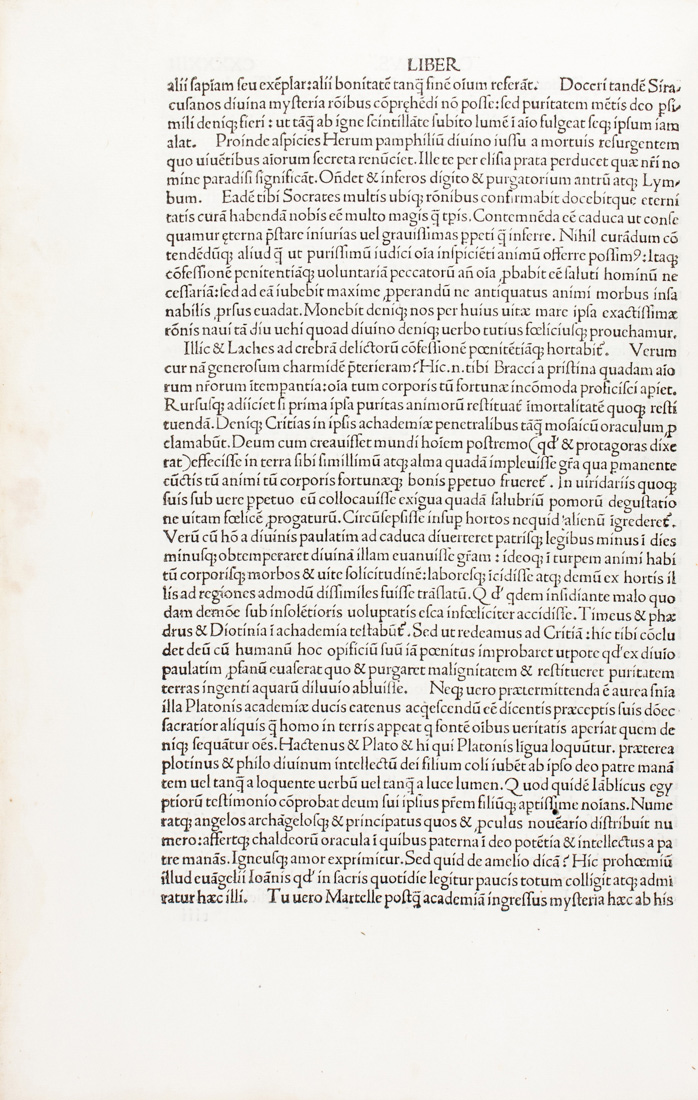 LIBER
alii sapiam seu exēplar:alii bonitatē tanq̄ finē oium referāt. Doceri tandē Sira-
cusanos diuina mysteria rōibus cōpręhēdi nō posse:sed puritatem mētis deo psi-
mili deniq; fieri : ut tāq̄ ab igne scintillāte subito lumē ī aio fulgeat seq; ipsum iam
alat. Proinde aspicies Herum pamphiliū diuino iussu a mortuis resurgentem
quo uiuētibus aiorum secreta renūciet. Ille te per elisia prata perducet quæ nr̄i no
mine paradisi significāt. On̄det & inferos digito & purgatorium antrū atq; Lym-
bum. Eadē tibi Socrates multis ubiq; rōnibus confirmabit docebitque eterni
tatis curā habendā nobis eē multo magis q̄ tp̄is. Contemnēda eē caduca ut conse
quamur ęterna p̄stare iniurias uel grauissimas ppeti q̄ inferre. Nihil curādum cō
tendēdūq; aliud q̄ ut purissimū iudici oīa inspiciēti animū offerre possim9:Itaq;
cōfessionē penitentiāq; uoluntariā peccatorū an̄ oīa ꝓbabit eē saluti hominū ne
cessariā:sed ad eā iubebit maxime ꝓperandū ne antiquatus animi morbus insa
nabilis ꝓrsus euadat. Monebit deniq; nos per huius uitæ mare ipsa exactissimæ
rōnis naui tā diu uehi quoad diuino deniq; uerbo tutius fœliciusq; prouehamur.
Illic & Laches ad crebrā delictorū cōfessionē pœnitētiāq; hortabit̄. Verum
cur nā generosum charmidē p̄terieram?Hic.n.tibi Bracci a pristina quadam aio
rum nr̄orum ītempantia:oīa tum corporis tū fortunæ incōmoda proficisci apiet.
Rursusq; adiiciet si prima ipsa puritas animorū restituat̄ īmortalitatē quoq; resti
tuendā. Deniq; Critias in ipsis achademiæ penetralibus tāq̄ mosaicū oraculum ꝓ
clamabūt. Deum cum creauisset mundi hoīem postremo(qd' & protagoras dixe
rat)effecisse in terra sibi simillimū atq; alma quadā impleuisse gr̄a qua pmanente
cūctis tū animi tū corporis fortunæq; bonis ppetuo frueret̄. In uiridariis quoq;
suis sub uere ppetuo eū collocauisse exigua quadā salubriū pomorū degustatio
ne uitam fœlicē ꝓrogaturū. Circūsepsisse insup hortos nequid alienū īgrederet̄.
Verū cū hō a diuinis paulatim ad caduca diuerteret patrisq; legibus minus ī dies
minusq; obtemperaret diuinā illam euanuisse gr̄am : ideoq; ī turpem animi habi
tū corporisq; morbos & uite solicitudinē:laboresq; īcidisse atq; demū ex hortis il
lis ad regiones admodū dissimiles fuisse trāslatū. Q d' qdem insidiante malo quo
dam demōe sub insolētioris uoluptatis esca infœliciter accidisse. Timeus & phæ
drus & Diotinia ī achademia testabūt̄. Sed ut redeamus ad Critiā : hic tibi cōclu
det deū cū humanū hoc opificiū suū iā pœnitus improbaret utpote qd' ex diuīo
paulatim ꝓfanū euaserat quo & purgaret malignitatem & restitueret puritatem
terras ingenti aquarū diluuio abluisse. Neq; uero prætermittenda ē aurea sn̄ia
illa Platonis academiæ ducis eatenus acq̄escendū eē dicentis præceptis suis dōec
sacratior aliquis q̄ homo in terris appeat q fontē oībus ueritatis aperiat quem de
niq; sequātur oēs. Hactenus & Plato & hi qui Platonis ligua loquūtur. præterea
plotinus & philo diuinum intellectū dei filium coli iubēt ab ipso deo patre manā
tem uel tanq̄ a loquente uerbū uel tanq̄ a luce lumen. Q uod quidē Iāblicus egy
ptiorū testimonio cōprobat deum sui ipsius pr̄em filiūq; aptissime noīans. Nume
ratq; angelos archāgelosq; & principatus quos & ꝓculus nouēario distribuit nu
mero:affertq; chaldeorū oracula ī quibus paterna ī deo potētia & intellectus a pa
tre manās. Igneusq; amor exprimitur. Sed quid de amelio dicā? Hic prohœmiū
illud euāgelii Ioānis qd' in sacris quotidie legitur paucis totum colligit atq; admi
ratur hæc illi. Tu uero Martelle postq̄ academiā ingressus mysteria hæc ab his